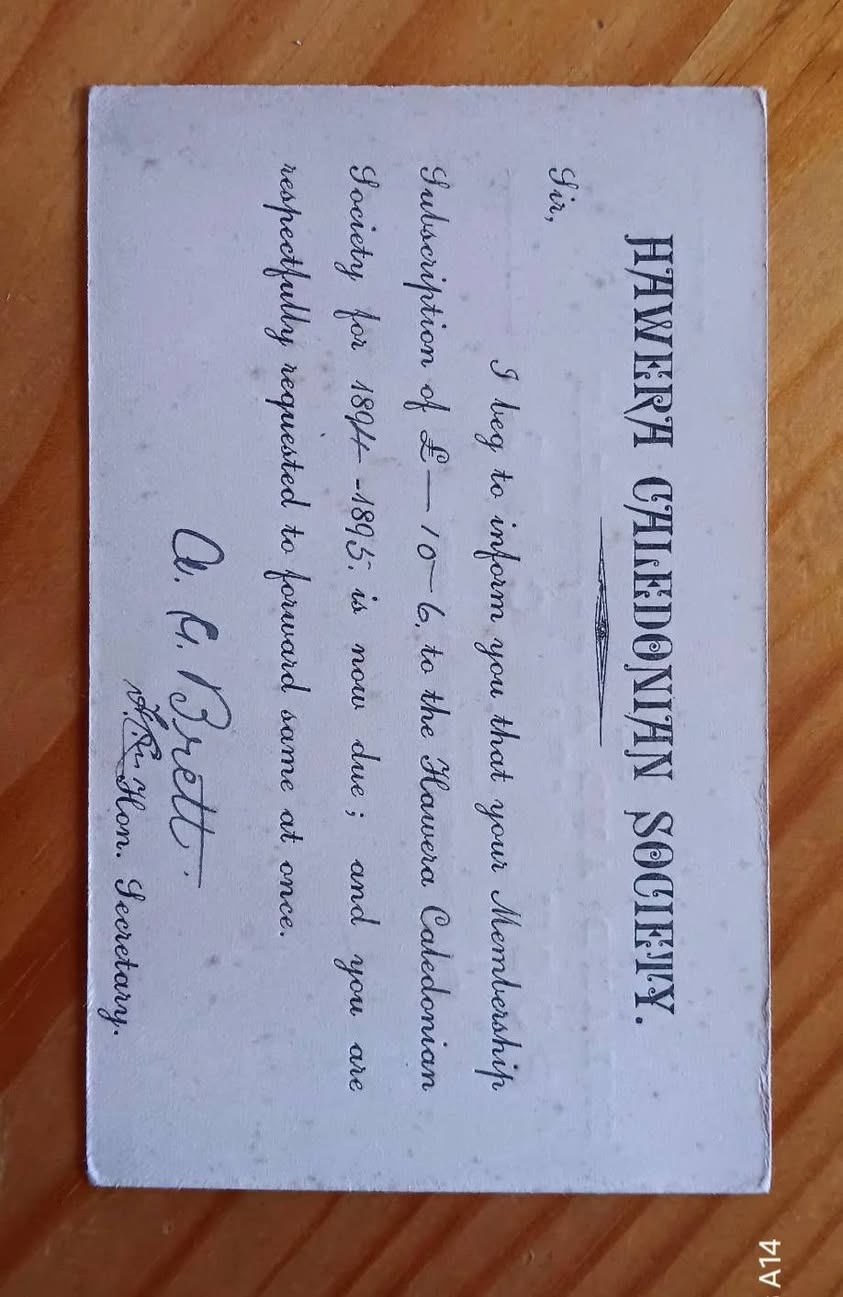 HAWERA CALEDONIAN SOCIETY.
Sir,
I beg to inform you that your Membership
Subscription of £—10—6, to the Hawera Caledonian
Society for 1894-1895, is now due; and you are
respectfully requested to forward same at once.
A. G. Brett.
Hon. Secretary.
A14